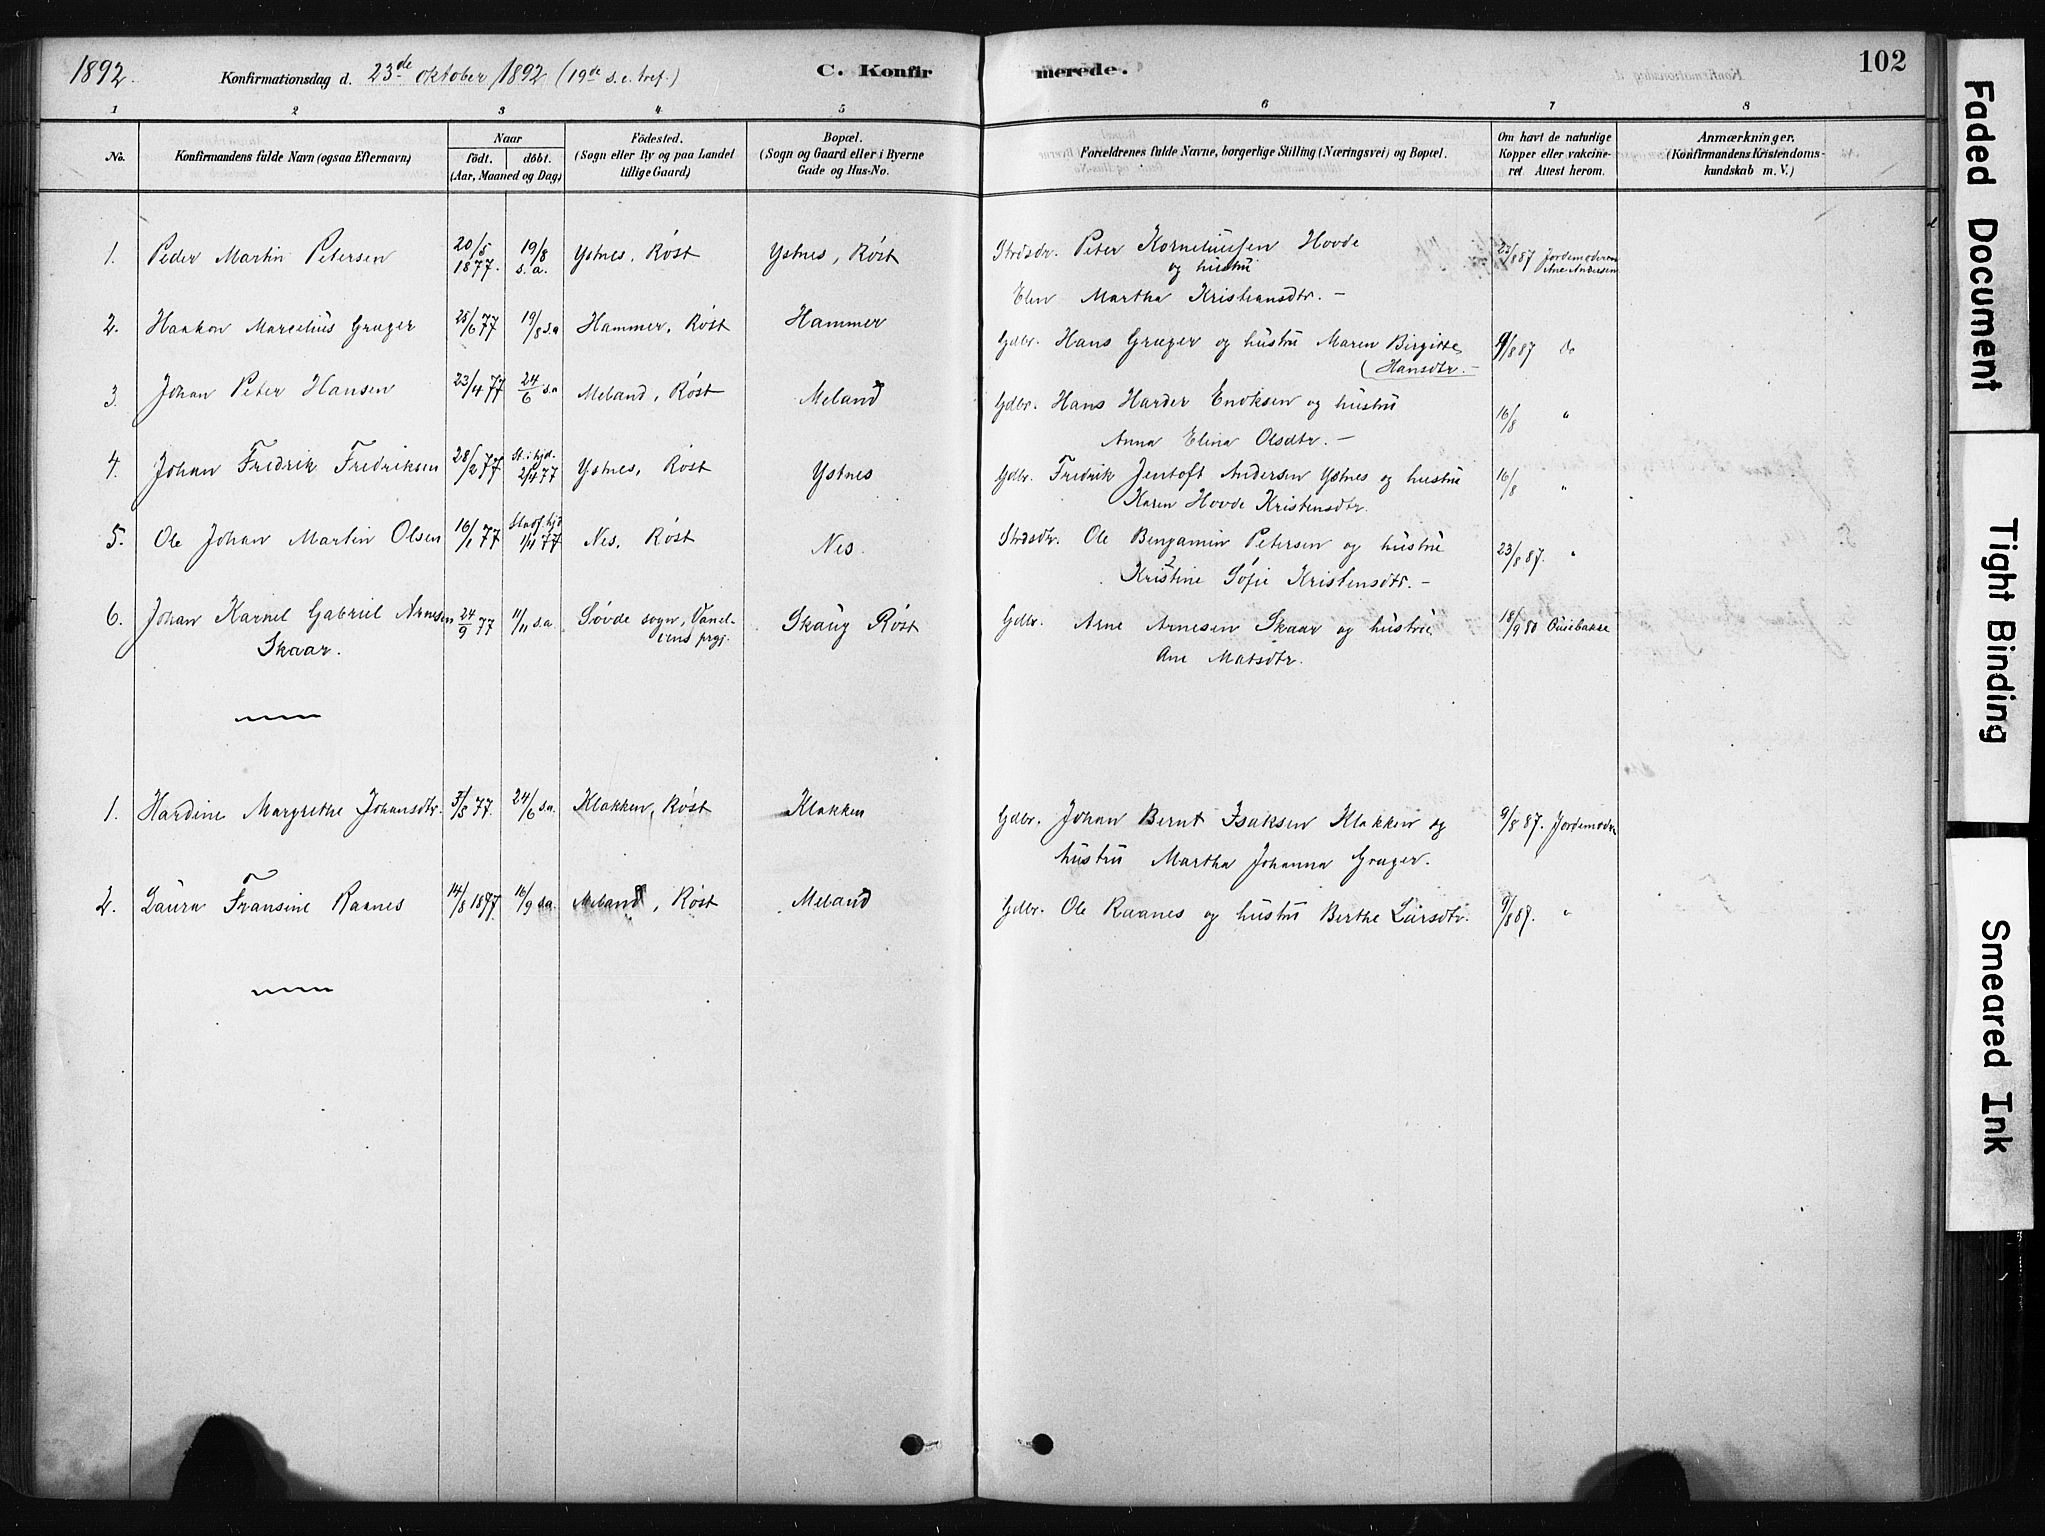 1892. Konfirmationsdag d. 23de oktober 1892 (19de s. e. tref.) C. Konfirmerede. 102
1 2 3 4 5 6 7 8
No. Konfirmandens fulde Navn (ogsaa Efternavn) Naar födt. döbt. (Aar, Maaned og Dag) Födested. (Sogn eller By og paa Landet tillige Gaard) Bopæl. (Sogn og Gaard eller i Byerne Gade og Hus-No. Forældrenes fulde Navne, borgerlige Stilling (Næringsvei) og Bopæl. Om havt de naturlige Kopper eller vakcineret. Attest herom. Anmærkninger. (Konfirmandens Kristendomskundskab m. V.)
1. Peder Martin Petersen 20/5 1877. 19/8 s.a. Ystnes, Røst Ystnes, Røst Strdsdr. Peter Korneliussen Hovde 23/8 87 Jordemoderen Ane Andersen
og hustru
Elen Martha Kristiansdtr. –
2. Haakon Marcelius Grøger 25/6 77 19/8 s.a Hammer, Røst Hammer Gdbr. Hans Grøger og hustru Maren Birgitte 9/8 87 do
(Hansdtr. –
3. Johan Peter Hansen 23/4 77 24/6 s.a Meland, Røst Meland Gdbr. Hans Harder Enoksen og hustru 16/8 "
Anna Elina Olsdtr. –
4. Johan Fredrik Fredriksen 28/2 77 St. i hjd. 2/4 77 Ystnes, Røst Ystnes Gdbr. Fredrik Jentoft Andersen Ystnes og hustru 16/8 "
Karen Hovde Kristensdtr.
5. Ole Johan Martin Olsen 16/1 77 Stadf. hjd 1/4 77 Nes, Røst Nes. Strdsdr. Ole Benjamin Petersen og hustru 23/8 87. "
Kristine Sofie Kristensdtr. –
6. Johan Karnel Gabriel Arnesen 24/9 77 11/11 s.a. Søvde sogn, Vanelvens prgj. Skaug Røst Gdbr. Arne Arnesen Skaar og hustru 18/9 80
Skaar. Ane Matsdtr.
1. Hardine Margrethe Johansdtr. 3/5 77. 24/6 s.a. Klakken, Røst Klakken Gdbr. Johan Bernt Isaksen Klakken og 9/8 87. Jordemodr
hustru Martha Johanna Grøger.
2. Laura Fransine Raanes 14/8 1877 16/9 s.a. Meland, Røst Meland Gdbr. Ole Raanes og hustru Berthe Larsdtr. 9/8 87. "
Faded Document
Tight Binding
Smeared Ink